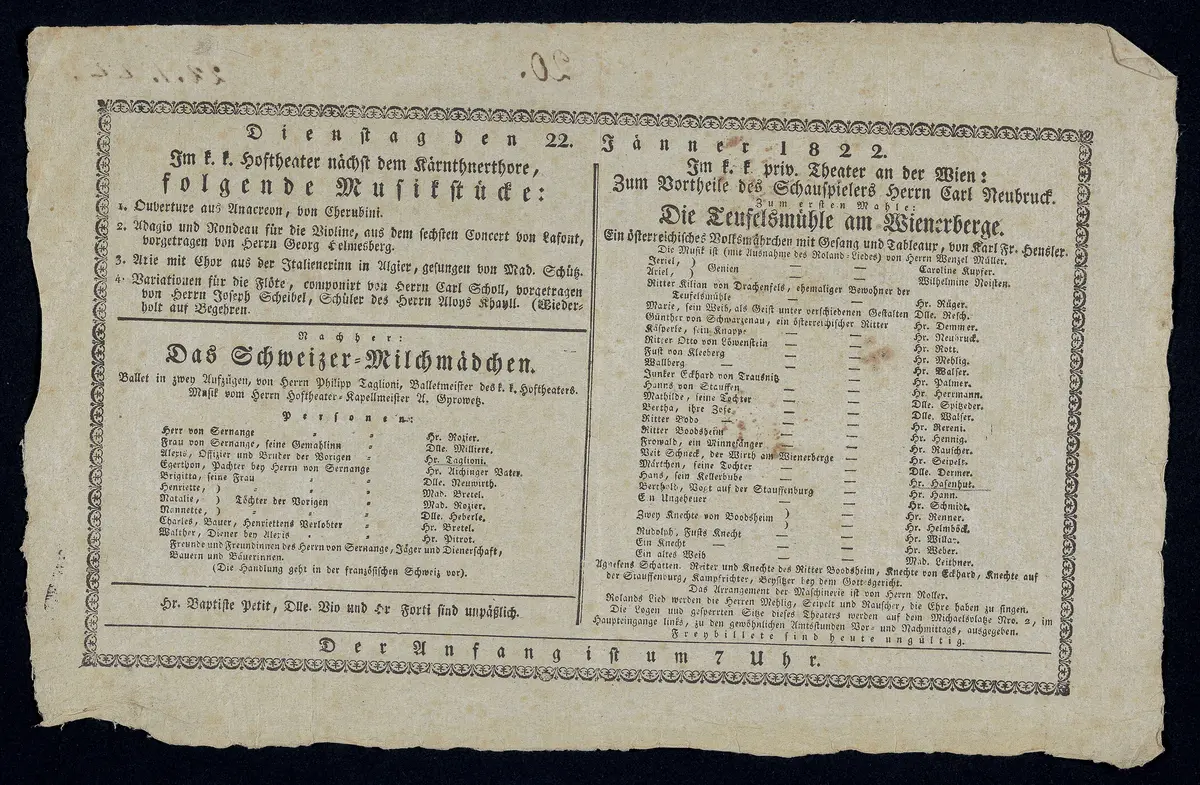 20.
Dienstag den 22. Jänner 1822.
Im k. k. Hoftheater nächst dem Kärnthnerthore,
folgende Musikstücke:
1. Ouverture aus Anacreon, von Cherubini.
2. Adagio und Rondeau für die Violine, aus dem sechsten Concert von Lafont,
vorgetragen von Herrn Georg Helmesberg.
3. Arie mit Chor aus der Italienerinn in Algier, gesungen von Mad. Schütz.
4. Variationen für die Flöte, componirt von Herrn Carl Scholl, vorgetragen
von Herrn Joseph Scheibel, Schüler des Herrn Aloys Khayll. (Wieder-
holt auf Begehren.
Nachher:
Das Schweizer-Milchmädchen.
Ballet in zwey Aufzügen, von Herrn Philipp Taglioni, Balletmeister des k. k. Hoftheaters.
Musik vom Herrn Hoftheater-Kapellmeister A. Gyrowetz.
Personen:
Herr von Sernange Hr. Rozier.
Frau von Sernange, seine Gemahlinn Dlle. Milliere.
Alexis, Offizier und Bruder der Vorigen Hr. Taglioni.
Egerthon, Pachter bey Herrn von Sernange Hr. Aichinger Vater.
Brigitta, seine Frau Dlle. Neuwirth.
Henriette, ) Mad. Bretel.
Natalie, ) Töchter der Vorigen Mad. Rozier.
Nannette, ) Dlle. Heberle.
Charles, Bauer, Henriettens Verlobter Hr. Bretel.
Walther, Diener bey Alexis Hr. Pitrot.
Freunde und Freundinnen des Herrn von Sernange, Jäger und Dienerschaft,
Bauern und Bäuerinnen.
(Die Handlung geht in der französischen Schweiz vor).
Hr. Baptiste Petit, Dlle. Vio und Hr Forti sind unpäßlich.
Im k. k. priv. Theater an der Wien:
Zum Vortheile des Schauspielers Herrn Carl Neubruck.
Zum ersten Mahle:
Die Teufelsmühle am Wienerberge.
Ein österreichisches Volksmährchen mit Gesang und Tableaux, von Karl Fr. Hensler.
Die Musik ist (mit Ausnahme des Roland-Liedes) von Herrn Wenzel Müller.
Jeriel, ) Genien — — Caroline Kupfer.
Ariel, ) — — Wilhelmine Noisten.
Ritter Kilian von Drachenfels, ehemaliger Bewohner der
Teufelsmühle — — Hr. Rüger.
Marie, sein Weib, als Geist unter verschiedenen Gestalten Dlle. Resch.
Günther von Schwarzenau, ein österreichischer Ritter Hr. Demmer.
Käsperle, sein Knappe — — Hr. Neubruck.
Ritter Otto von Löwenstein — — Hr. Rott.
Fust von Kleeberg — — Hr. Mehlig.
Wallberg — — Hr. Walser.
Junker Eckhard von Trausnitz — — Hr. Palmer.
Hanns von Stauffen — — Hr. Herrmann.
Mathilde, seine Tochter — — Dlle. Spitzeder.
Bertha, ihre Zofe — — Dlle. Walser.
Ritter Bodo — — Hr. Rereni.
Ritter Boodsheim — — Hr. Hennig.
Frowald, ein Minnesänger — — Hr. Rauscher.
Veit Schneck, der Wirth am Wienerberge — — Hr. Seipelt.
Märtchen, seine Tochter — — Dlle. Dermer.
Hans, sein Kellerbube — — Hr. Hasenhut.
Berthold, Vogt auf der Stauffenburg — Hr. Hann.
Ein Ungeheuer — — Hr. Schmidt.
Zwey Knechte von Boodsheim ) — Hr. Renner.
) — Hr. Helmböck.
Rudolph, Fusts Knecht — — Hr. Willax.
Ein Knecht — — Hr. Weber.
Ein altes Weib — — Mad. Leithner.
Agnekens Schatten. Reiter und Knechte des Ritter Boodsheim, Knechte von Eckhard, Knechte auf
der Stauffenburg, Kampfrichter, Beysitzer bey dem Gottesgericht.
Das Arrangement der Maschinerie ist von Herrn Roller.
Rolands Lied werden die Herren Mehlig, Seipelt und Rauscher, die Ehre haben zu singen.
Die Logen und gesperrten Sitze dieses Theaters werden auf dem Michaelsplatze Nro. 2, im
Haupteingange links, zu den gewöhnlichen Amtsstunden Vor- und Nachmittags, ausgegeben.
Freybillete sind heute ungültig.
Der Anfang ist um 7 Uhr.